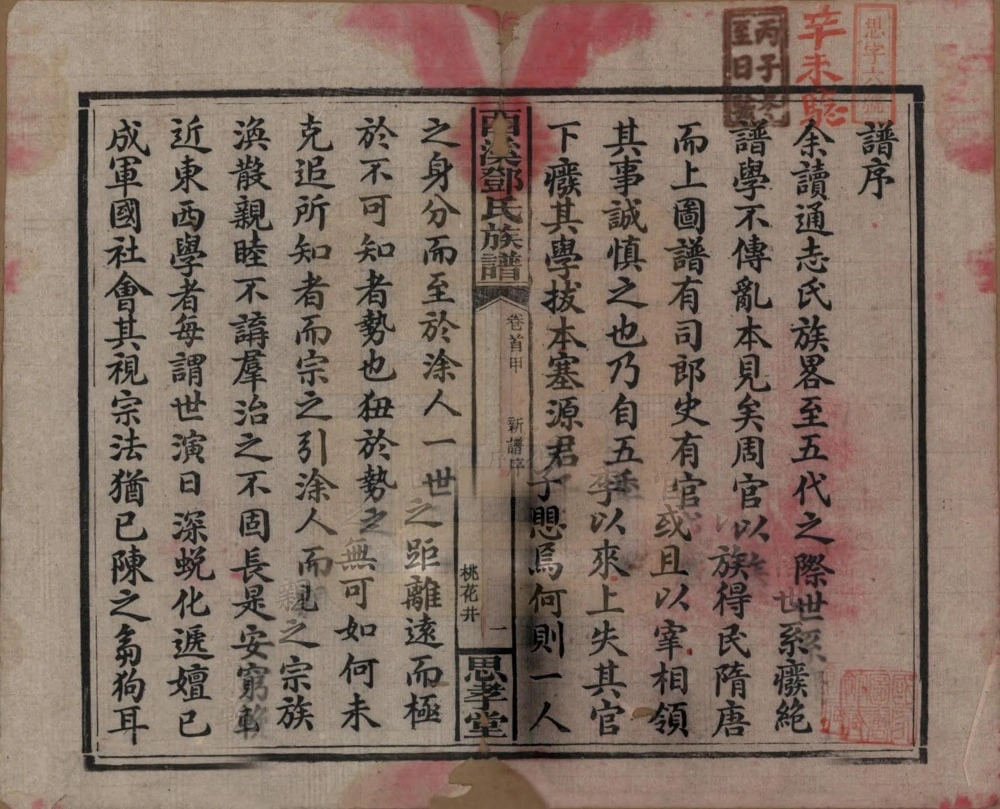 譜序
余讀通志氏族畧至五代之際世系癈絶
譜學不傳亂本見矣周官以族得民隋唐
而上圖譜有司郎史有官或且以宰相領
其事誠慎之也乃自五季以來上失其官
下癈其學拔本塞源君子愳焉何則一人
西溪鄧氏族譜
卷首甲
新譜序
桃花井
一
思孝堂
之身分而至於涂人一世之距離遠而極
於不可知者勢也狃於勢之無可如何未
克追所知者而宗之引涂人而親之宗族
渙散親睦不講羣治之不固長是安窮
近東西學者每謂世演日深蛻化遞嬗已
成軍國社會其視宗法猶已陳之芻狗耳
思字六號
辛未驗
丙子
至日